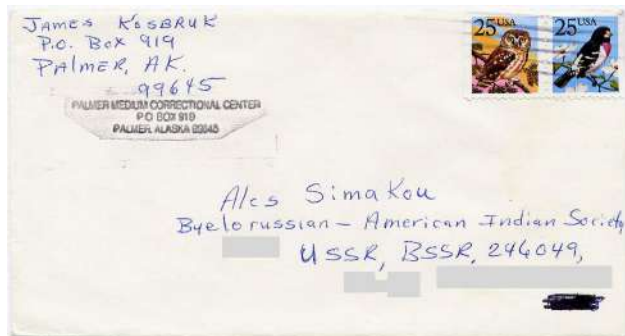 JAMES KOSBRUK
P.O. Box 919
PALMER, AK.
99645
PALMER MEDIUM CORRECTIONAL CENTER
P O BOX 919
PALMER, ALASKA 99645
25 USA
25 USA
Ales Simakou
Byelorussian - American Indian Society
USSR, BSSR, 246049,